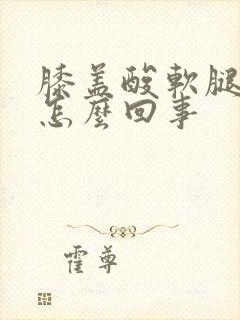 膝盖酸軟腿
怎麼回事
霍尊